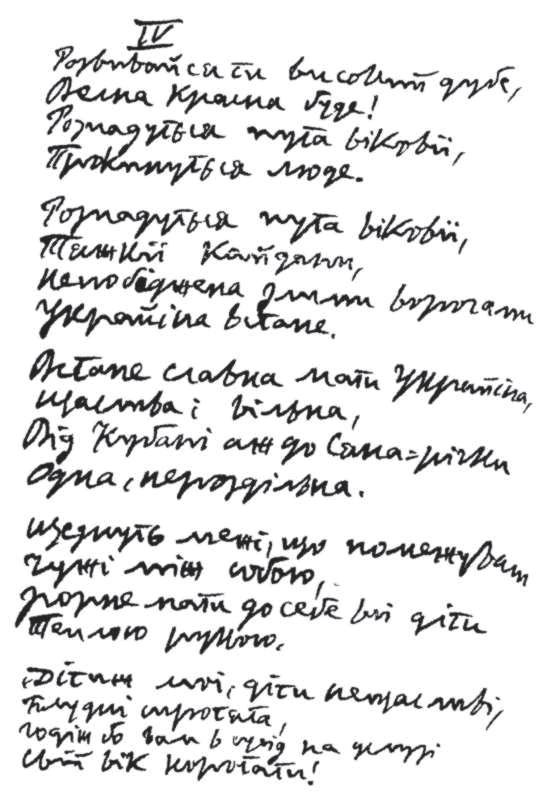 IV
Розвивайся ти високий дубе,
Весна красна буде!
Розпадуться пута віковії,
Прокинуться люде.
Розпадуться пута віковії,
Тяжкії кайдани,
Непобіджена злими ворогами
Україна встане.
Встане славна мати Україна,
Щаслива і вільна,
Від Кубані аж до Сяна=річки
Одна, нероздільна.
Щезнуть межі, що помежували
Чужі між собою,
Згорне мати до себе всі діти
Теплою рукою.
„Діти ж мої, діти нещасливі,
Блудні сиротята,
Годі ж бо вам в сусід на услузі
Свій вік коротати!